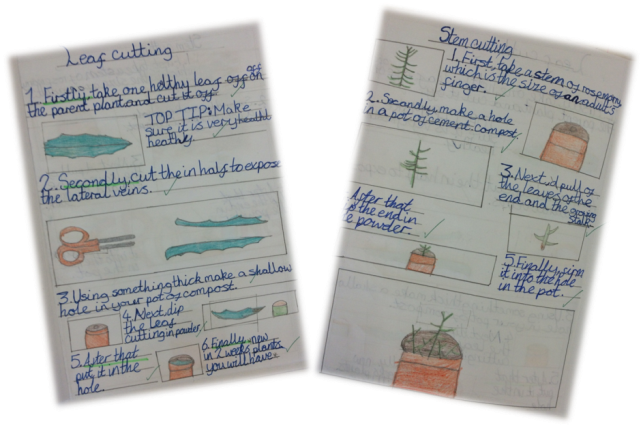 Leaf cutting
1. Firstly, take one helthy leaf off
the parent plant and cut it off
TOP TIP: Make
sure it is very
heathly.
2. Secondly, cut the in half to expose
the lateral veins.
3. Using something thick make a shallow
hole in your pot of compost.
4. Next dip
the leaf
cutting in powder,
5. After that
put it in the
hole.
6. Finally, now
in 2 weeks plants
you will have.
Stem cutting
1. First, take a stem of rosemary
which is the size of an adults
finger.
2. Secondly, make a hole
in a pot of cement compost.
3. Next pull of
the leaves of the
end and the
After that
the end in
powder.
5. Finally,
it into the hole
in the pot.